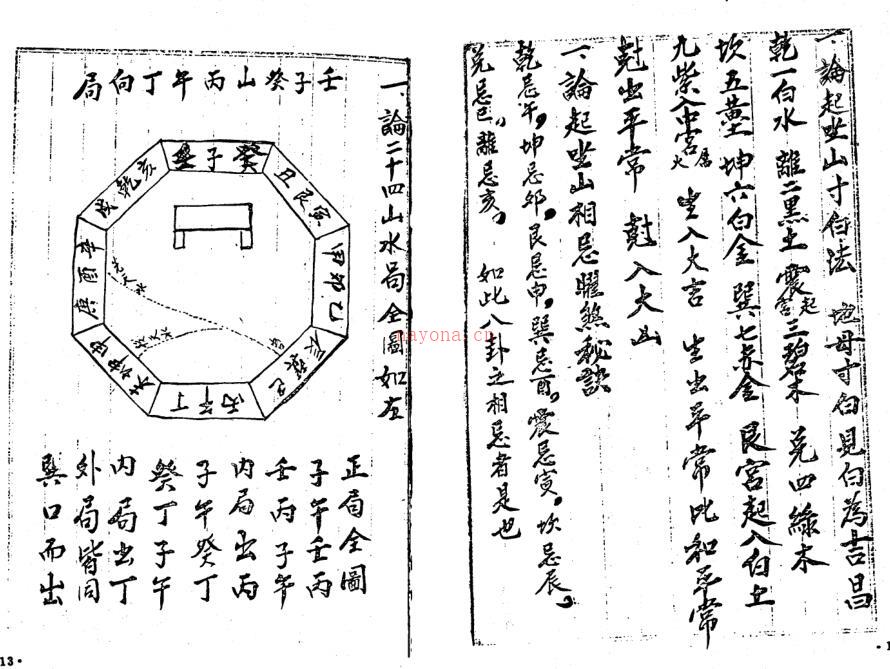 一、論起坐山寸白法 地母寸白見白為吉昌
乾一白水 離二黑土 震宮起三碧木 兌四綠木
坎五黃土 坤六白金 巽七赤金 艮宮起八白土
九紫入中宮屬火 生入大吉 生出平常 比和平常
尅出平常 尅入大凶
一、論起坐山相忌曜煞秘訣
乾忌午，坤忌卯，艮忌申，巽忌酉，震忌寅，坎忌辰。
兌忌巳，離忌亥。 如此八卦之相忌者是也
一、論二十四山水局全圖如左
壬子癸山丙午丁向局
壬子癸
丑艮寅
甲卯乙
辰巽巳
丙午丁
未坤申
庚酉辛
戌乾亥
正局全圖
子午壬丙
壬丙子午
內局出丙
子午癸丁
癸丁子午
內局出丁
外局皆同
巽口而出
nayona.cn
13·